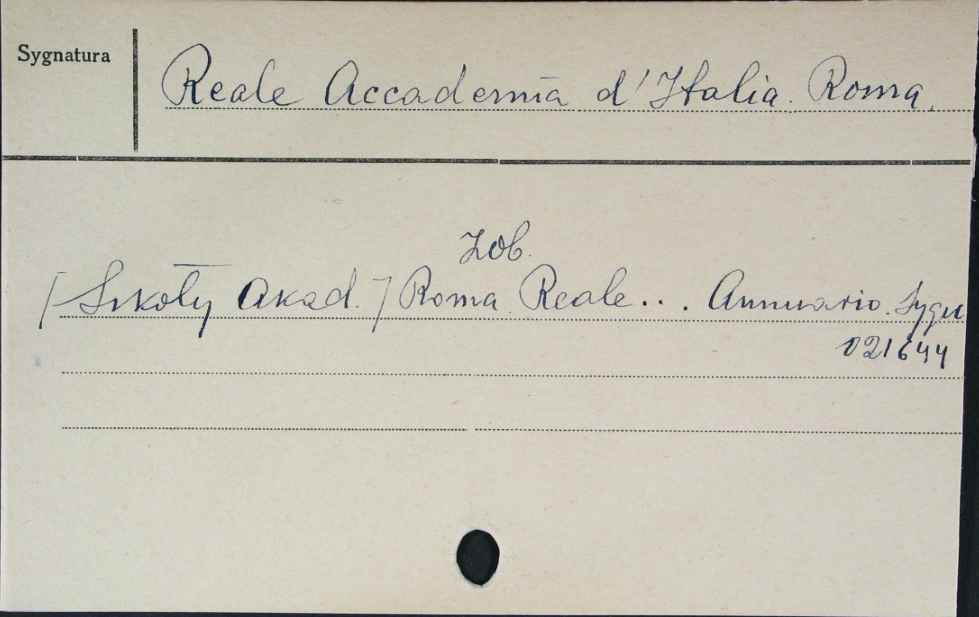 Sygnatura
Reale Accademia d'Italia. Roma.
Zob.
[Szkoły Akad.] Roma Reale... Annuario. Sygn
021644